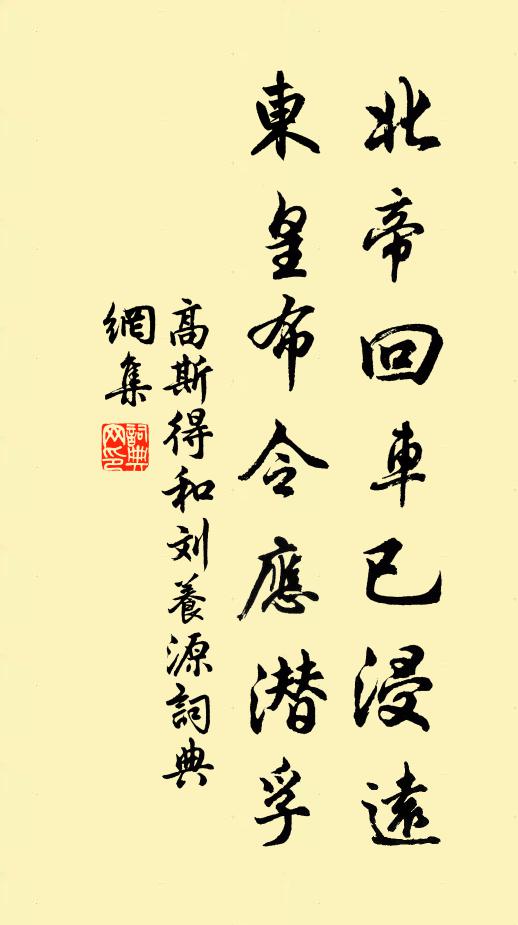 北帝回車已浸遠
東皇布令應潛孚
高斯得和刘養源詞典
網集
詞典
网印